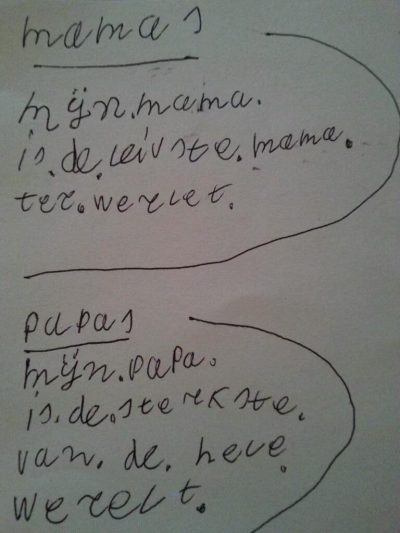 mamas
mijn.mama.
is.de.leivste.mama.
ter.werelt.
papas
mijn.papa.
is.de.sterkste.
van.de.hele.
werelt.